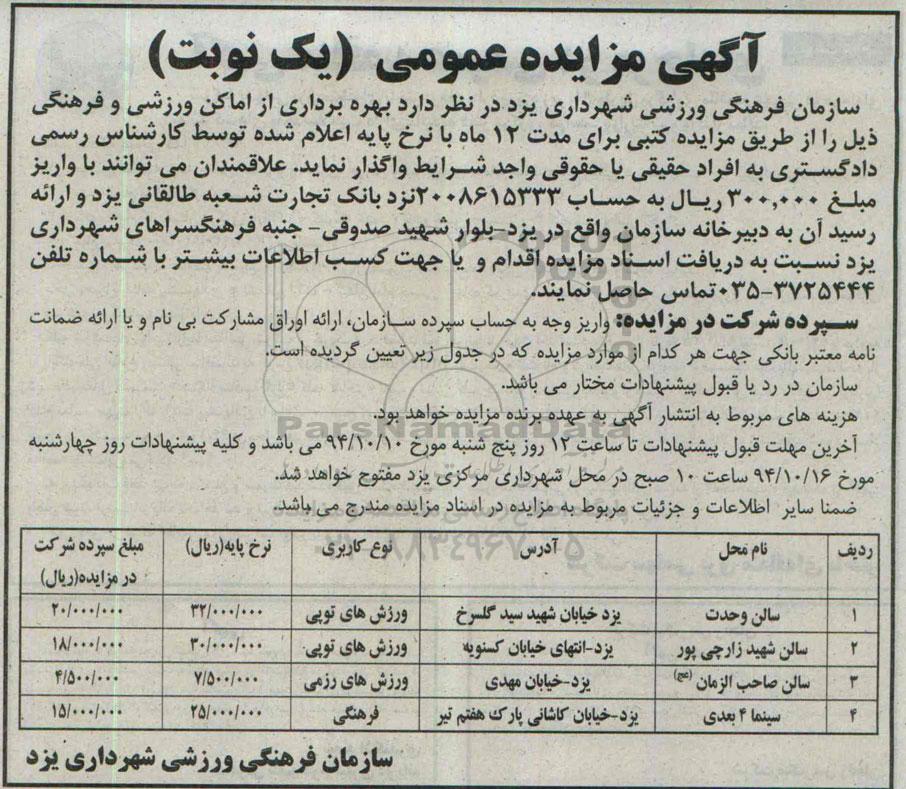 آگهی مزایده عمومی (یک نوبت)
سازمان فرهنگی ورزشی شهرداری یزد در نظر دارد بهره برداری از اماکن ورزشی و فرهنگی
ذیل را از طریق مزایده کتبی برای مدت ۱۲ ماه با نرخ پایه اعلام شده توسط کارشناس رسمی
دادگستری به افراد حقیقی یا حقوقی واجد شرایط واگذار نماید. علاقمندان می توانند با واریز
مبلغ ۳۰۰,۰۰۰ ریال به حساب ۲۰۰۸۶۱۵۳۳۳ نزد بانک تجارت شعبه طالقانی یزد و ارائه
رسید آن به دبیرخانه سازمان واقع در یزد-بلوار شهید صدوقی- جنبه فرهنگسراهای شهرداری
یزد نسبت به دریافت اسناد مزایده اقدام و یا جهت کسب اطلاعات بیشتر با شماره تلفن
۰۳۵-۳۷۲۵۴۴۴ تماس حاصل نمایند.
سپرده شرکت در مزایده: واریز وجه به حساب سپرده سازمان، ارائه اوراق مشارکت بی نام و یا ارائه ضمانت
نامه معتبر بانکی جهت هر کدام از موارد مزایده که در جدول زیر تعیین گردیده است.
سازمان در رد یا قبول پیشنهادات مختار می باشد.
هزینه های مربوط به انتشار آگهی به عهده برنده مزایده خواهد بود.
آخرین مهلت قبول پیشنهادات تا ساعت ۱۲ روز پنج شنبه مورخ ۹۴/۱۰/۱۰ می باشد و کلیه پیشنهادات روز چهارشنبه
مورخ ۹۴/۱۰/۱۶ ساعت ۱۰ صبح در محل شهرداری مرکزی یزد مفتوح خواهد شد.
ضمنا سایر اطلاعات و جزئیات مربوط به مزایده در اسناد مزایده مندرج می باشد.
ردیف نام محل آدرس نوع کاربری نرخ پایه(ریال) مبلغ سپرده شرکت در مزایده(ریال)
۱ سالن وحدت یزد خیابان شهید سید گلسرخ ورزش های توپی ۳۲/۰۰۰/۰۰۰ ۲۰/۰۰۰/۰۰۰
۲ سالن شهید زارچی پور یزد-انتهای خیابان کسنویه ورزش های توپی ۳۰/۰۰۰/۰۰۰ ۱۸/۰۰۰/۰۰۰
۳ سالن صاحب الزمان (عج) یزد-خیابان مهدی ورزش های رزمی ۷/۵۰۰/۰۰۰ ۴/۵۰۰/۰۰۰
۴ سینما ۴ بعدی یزد-خیابان کاشانی پارک هفتم تیر فرهنگی ۲۵/۰۰۰/۰۰۰ ۱۵/۰۰۰/۰۰۰
سازمان فرهنگی ورزشی شهرداری یزد
ParsNamadData